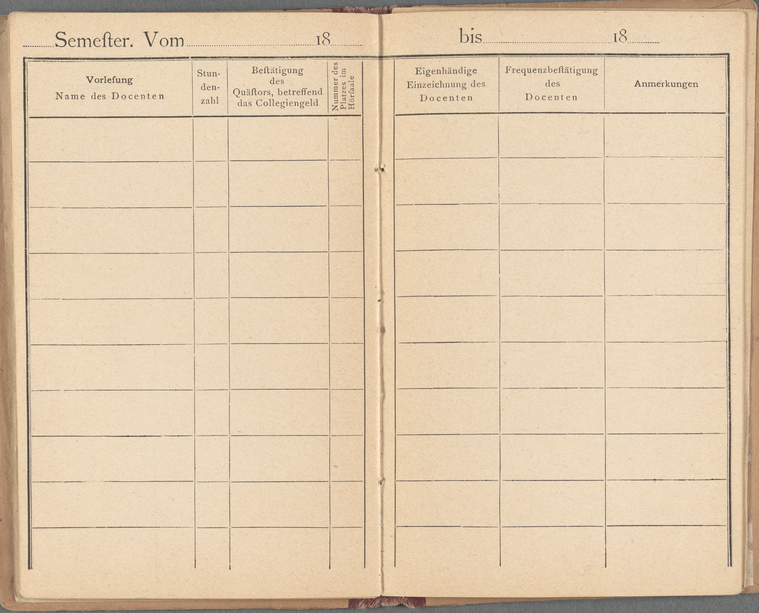 Semeſter. Vom 18
bis 18
Vorleſung
Name des Docenten
Stun-
den-
zahl
Beſtätigung
des
Quäſtors, betreffend
das Collegiengeld
Nummer des
Platzes im
Hörſaale
Eigenhändige
Einzeichnung des
Docenten
Frequenzbeſtätigung
des
Docenten
Anmerkungen